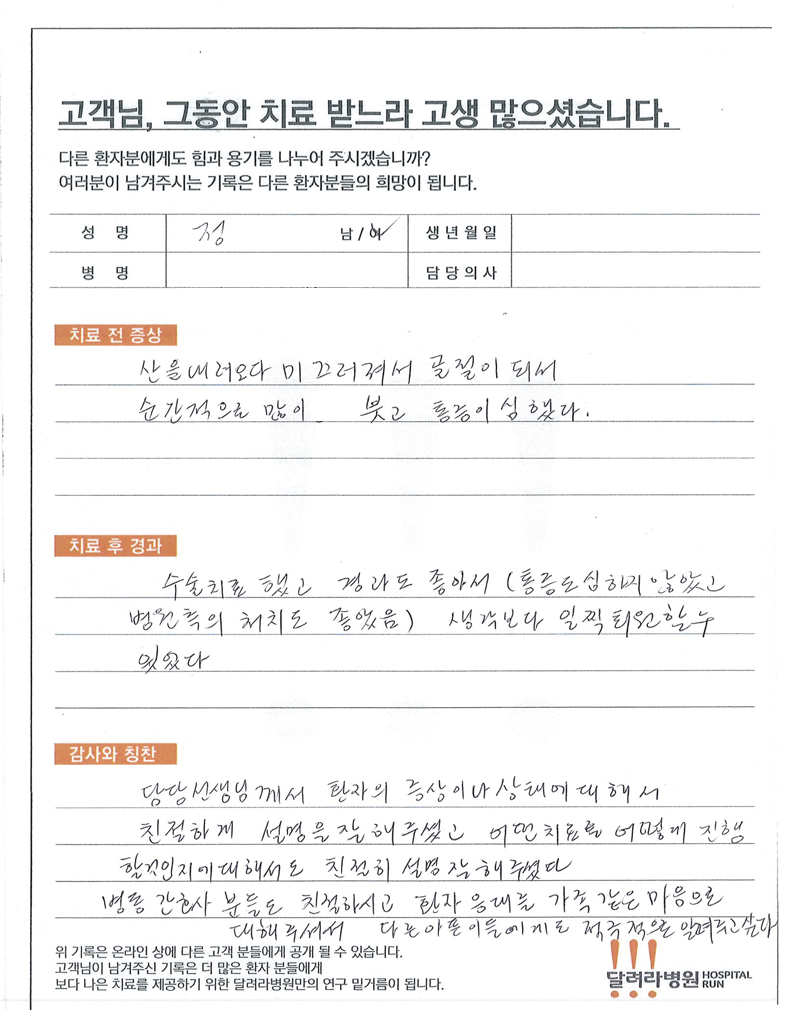 고객님, 그동안 치료 받느라 고생 많으셨습니다.
다른 환자분에게도 힘과 용기를 나누어 주시겠습니까?
여러분이 남겨주시는 기록은 다른 환자분들의 희망이 됩니다.
성 명 정 남/여 생년월일
병 명 담당의사
치료 전 증상
산을내려오다 미끄러져서 골절이 되서
순간적으로 많이 붓고 통증이 심했다.
치료 후 경과
수술치료 했고 경과도 좋아서 (통증도심하지 않았고
병원측의 처치도 좋았음) 생각보다 일찍퇴원할수
있었다
감사와 칭찬
담당선생님께서 환자의 증상이나 상태에대해서
친절하게 설명을 잘해주셨고 어떤치료를 어떻게 진행
할것인지에대해서도 친절히 설명 잘해주셨다
병동 간호사 분들도 친절하시고 환자 응대를 가족같은 마음으로
대해주셔서 다른아픈이들에게도 적극적으로 알려주고싶다
위 기록은 온라인 상에 다른 고객 분들에게 공개 될 수 있습니다.
고객님이 남겨주신 기록은 더 많은 환자 분들에게
보다 나은 치료를 제공하기 위한 달려라병원만의 연구 밑거름이 됩니다.
!!!
달려라병원 HOSPITAL RUN